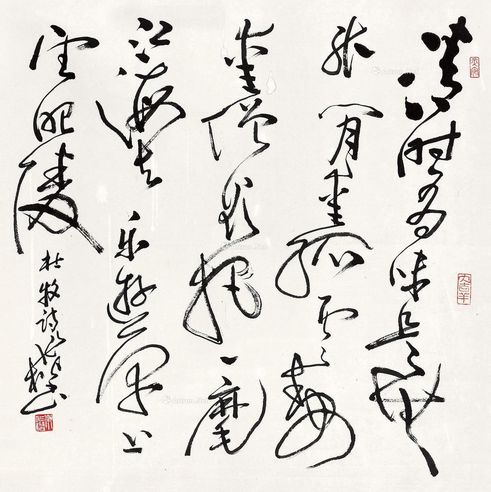 清时有味是无
能閒爱孤云静
爱僧欲把一麾
江海去乐游原上
望昭陵
杜牧诗